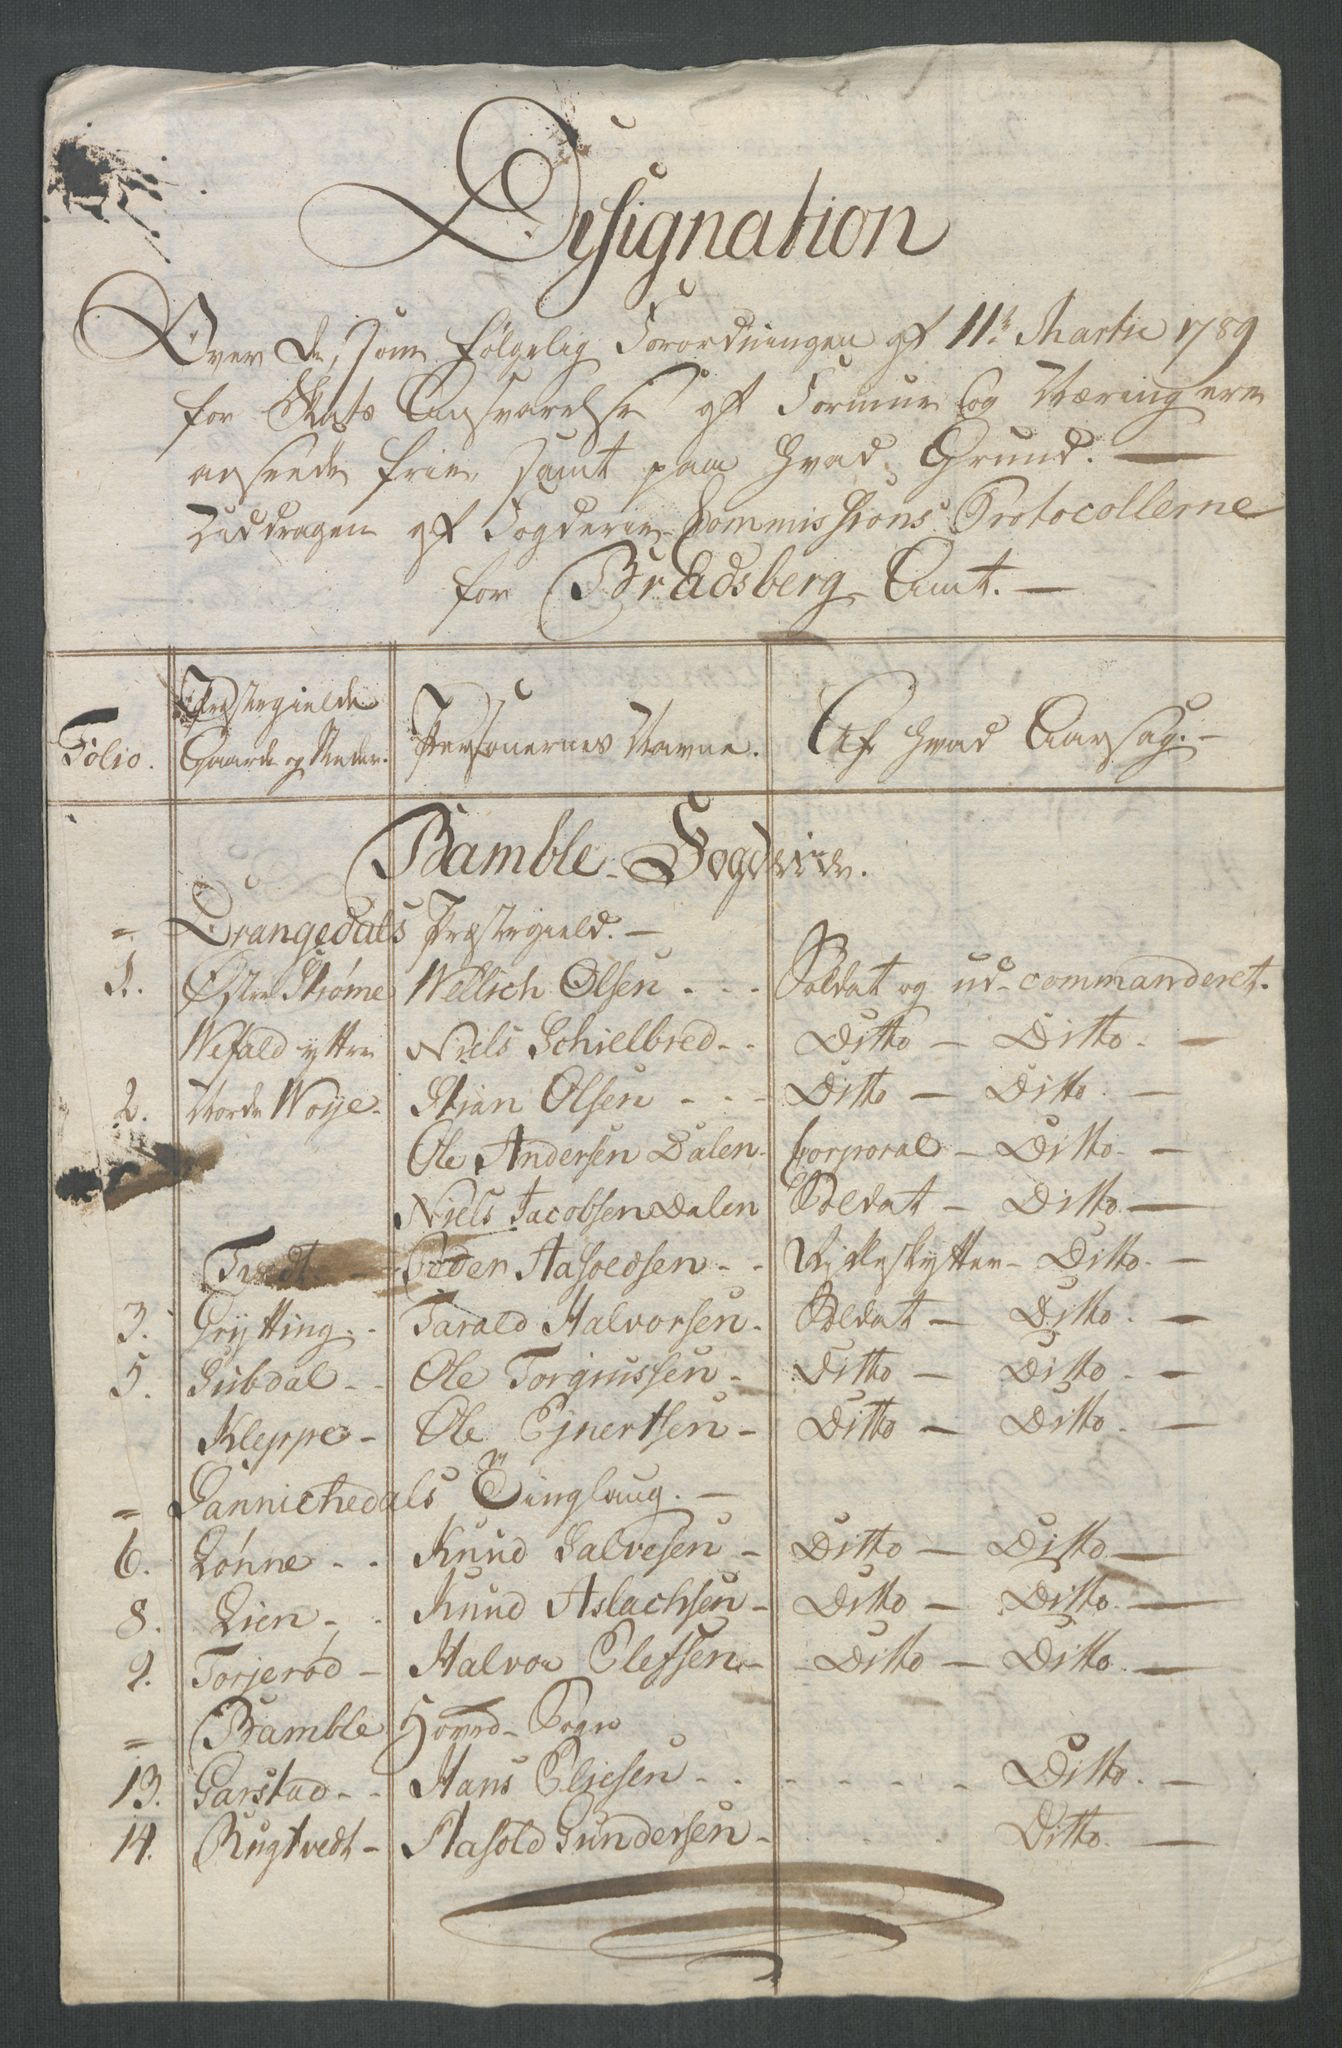 Designation
Over de, som følgelig Forordningen af 11te Martii 1789
for Skats Ansvarelse af Formue og Næring ere
anseede frie, samt paa hvad Grund. —
Uddragen af Fogderie Commissions Protocollerne
for Bradsberg Amt. —
Folio. Præstegielde Gaarde og Steder. Personernes Navne. Af hvad Aarsag. —
Bamble Fogderie.
= Drangedals Præstegield. —
1. Østre Strøme Wellich Olsen - - - Soldat og ud-commanderet.
Wefald yttre Niels Schielbred - - Ditto — Ditto. —
2. Nordre Woje - Stian Olsen - - - Ditto — Ditto. —
Ole Andersen Dalen - Corporal — Ditto. —
Niels Jacobsen Dalen Soldat — Ditto. —
Tvedt - - Peder Aasoldsen - - Rifleskytter - Ditto. —
3. Grytting - - Tarald Halvorsen - Soldat — Ditto. —
5. Gusdal - - Ole Torgiussen - Ditto — Ditto. —
Kleppe - Ole Ejnertsen - Ditto — Ditto. —
= Sannichedals Tinglaug. —
6. Lønne - - Knud Salvesen - Ditto — Ditto. —
8. Lien - - Knud Aslachsen - Ditto — Ditto. —
9. Torjerød - Halvor Elefsen - - Ditto — Ditto. —
= Bamble Hoved-Sogn
13. Garstad - - Hans Eliesen - - - - - - Ditto. —
14. Rugtvedt - Aasold Gundersen - - - - Ditto. —